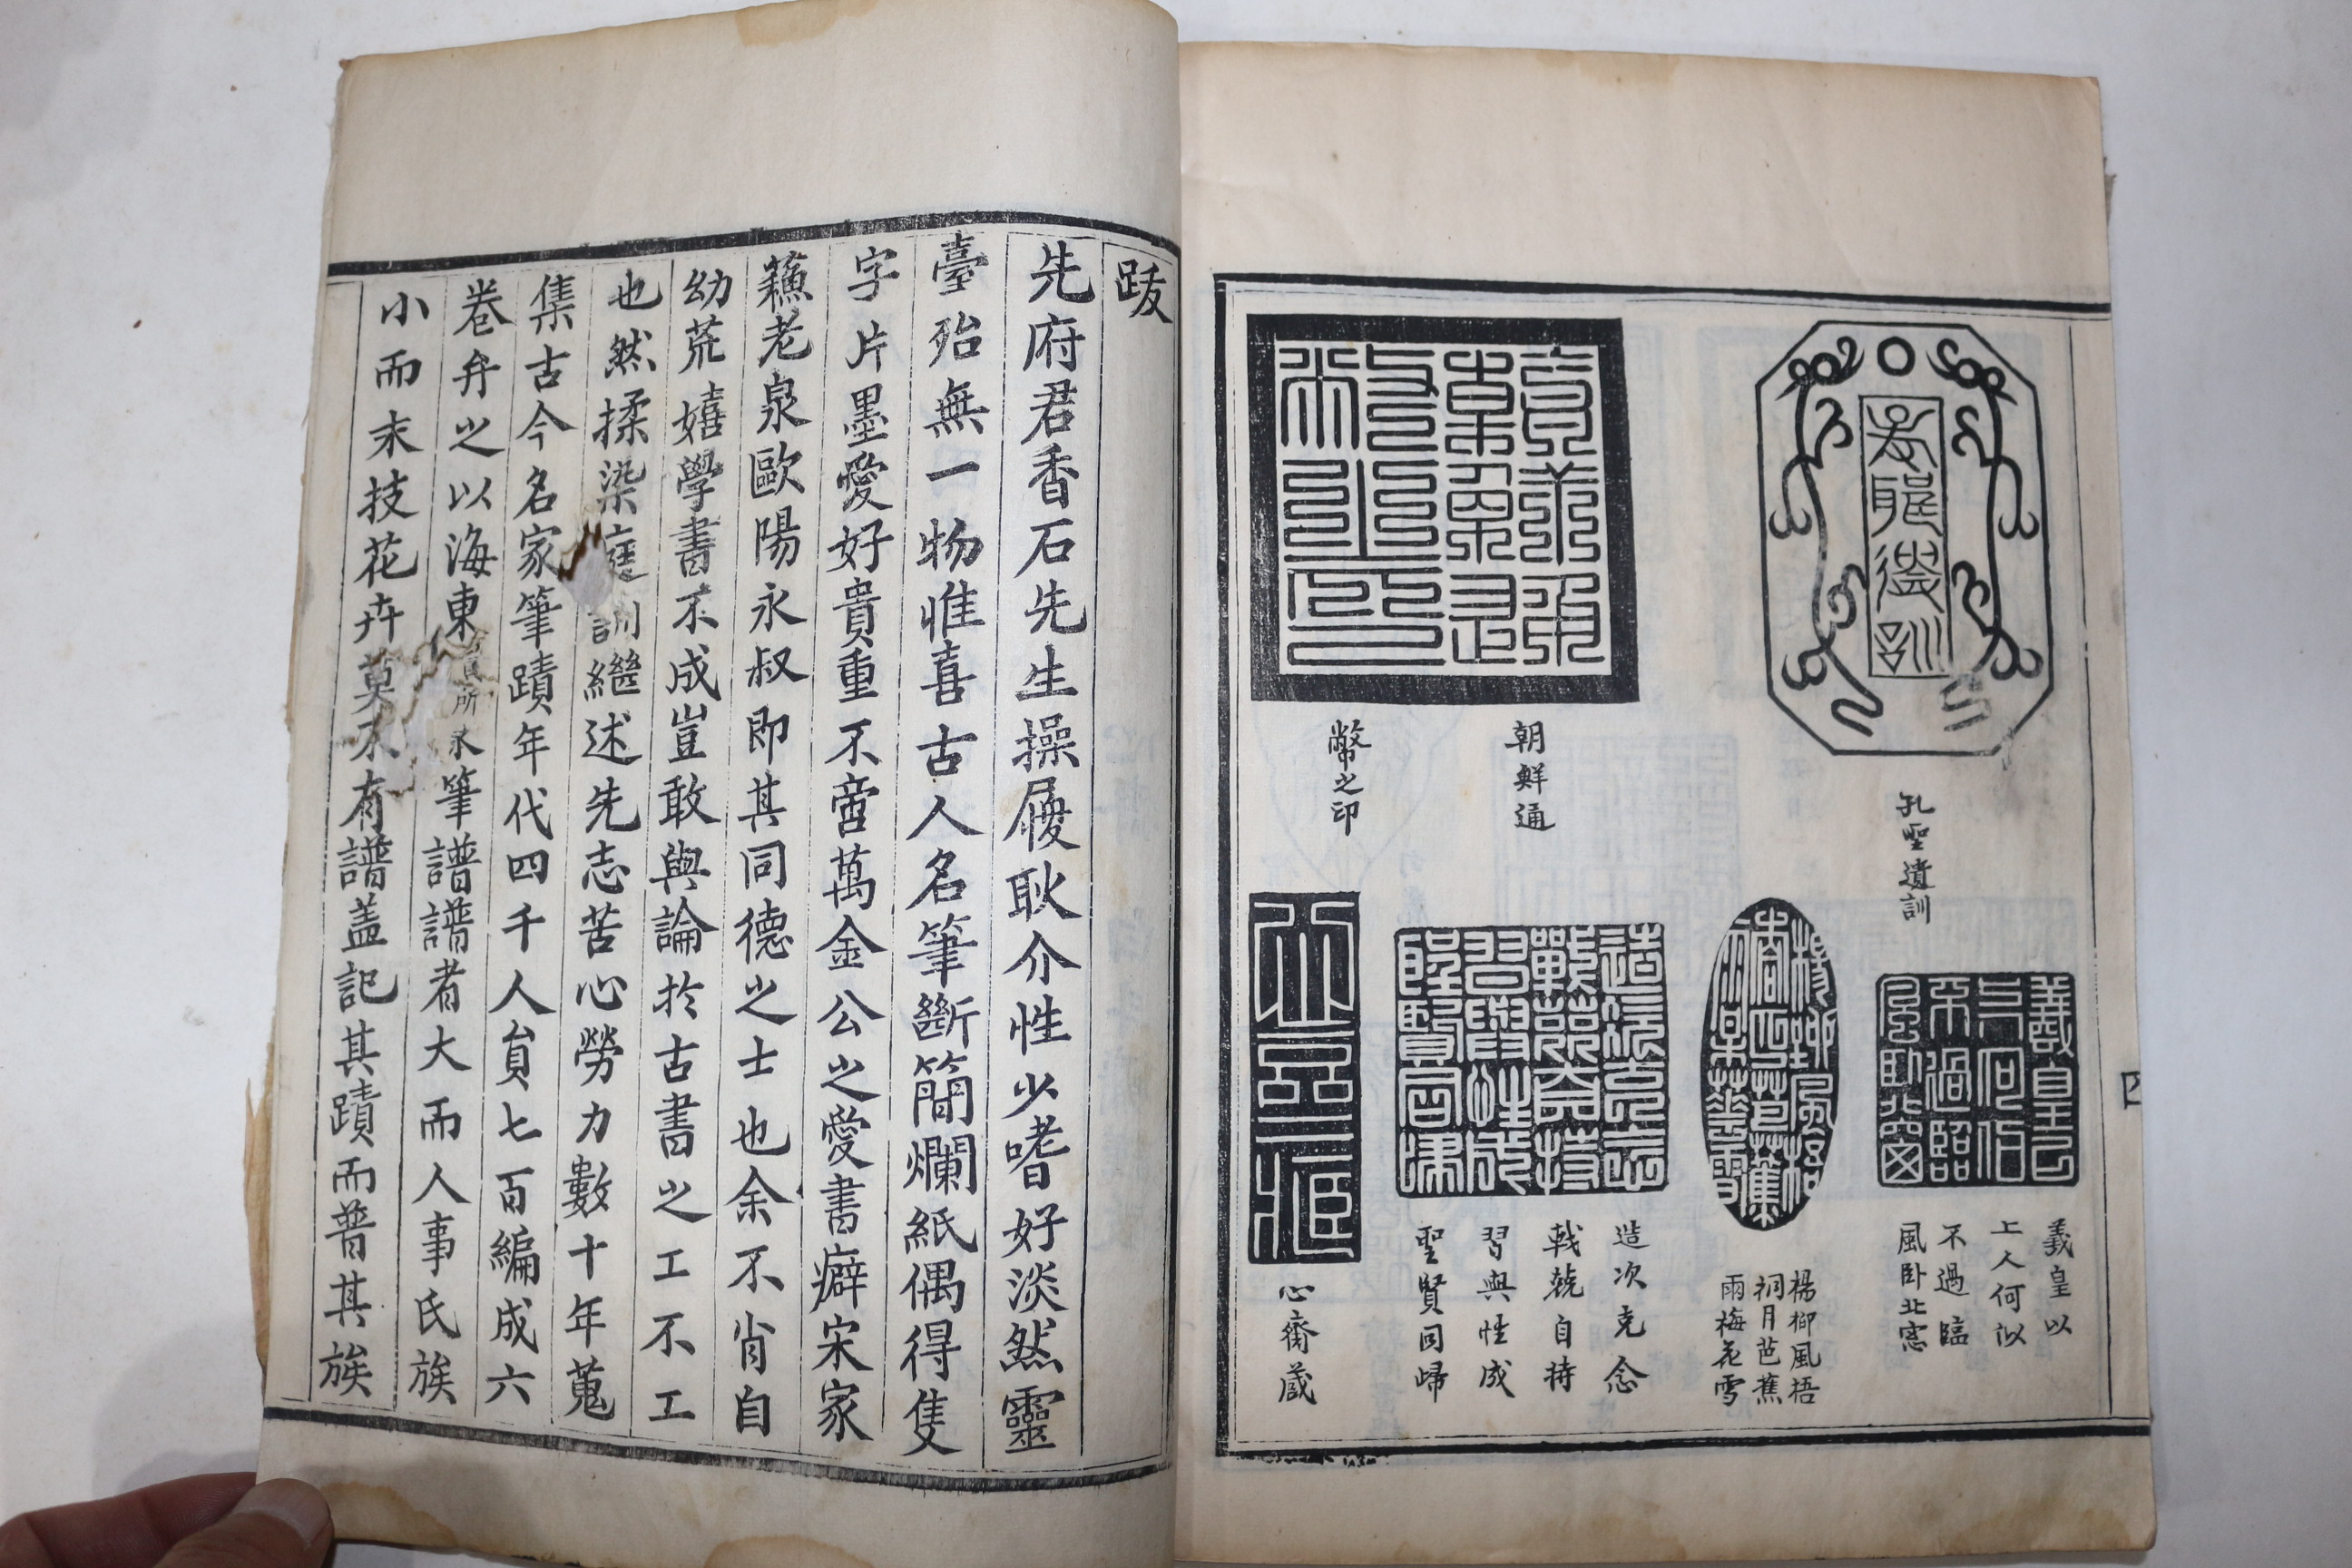 孔聖遺訓
朝鮮通
幣之印
義皇以
上人何似
不過臨
風卧北窓
楊柳風梧
桐月芭蕉
雨梅花雪
造次克念
戰兢自持
習與性成
聖賢同歸
心齋蔵
跋
先府君香石先生操履耿介性少嗜好淡然靈
臺殆無一物惟喜古人名筆斷簡爛紙偶得隻
字片墨愛好貴重不啻萬金公之愛書癖宋家
蘓老泉歐陽永叔即其同德之士也余不肖自
幼荒嬉學書不成豈敢與論於古書之工不工
也然揉染庭訓繼述先志苦心勞力數十年蒐
集古今名家筆蹟年代四千人貟七百編成六
卷弁之以海東 所 筆譜譜者大而人事氏族
小而末技花卉莫不有譜盖記其蹟而普其族